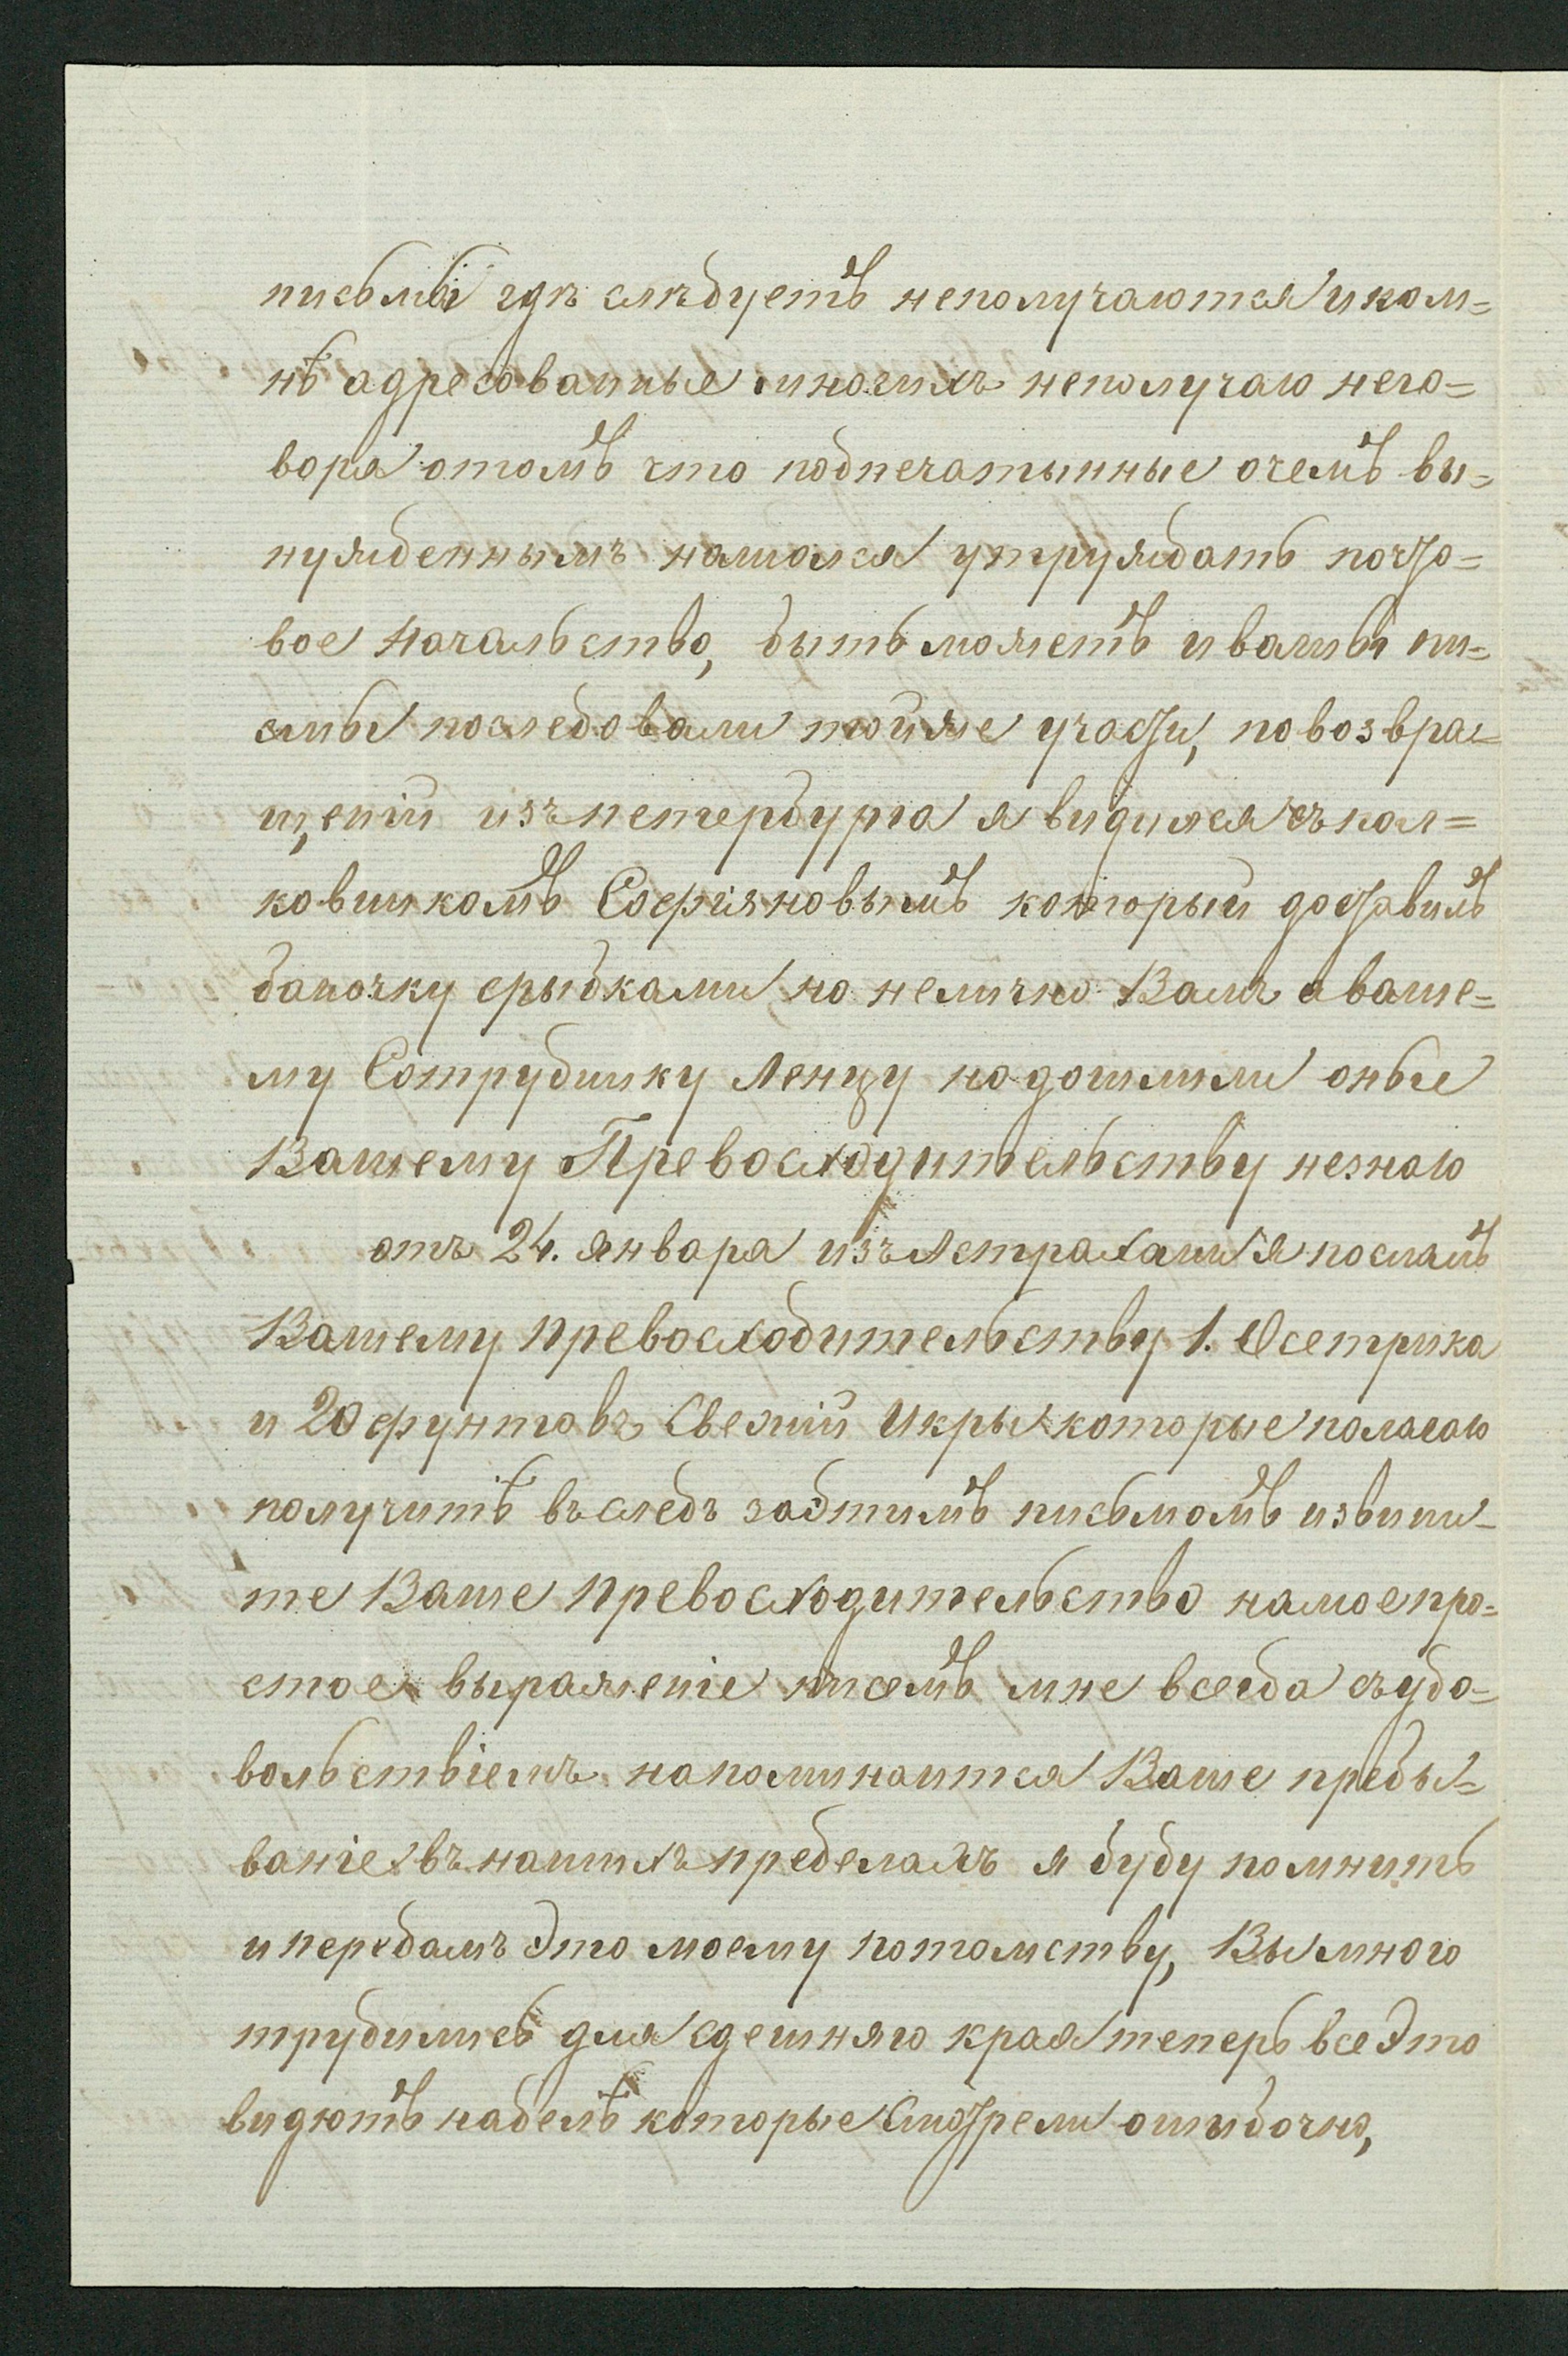 письмы гдѣ слѣдуетъ неполучаются и ком=
нѣ адресованные многихъ неполучаю него=
воря отомъ что подпечатынные очемъ вы=
нужденнымъ нашолся утруждать почто=
вое Начальство, быть можетъ и вашы пи=
смы последовали тойже участи, повозвра=
щеніи изъ петербурга я виделся съ пол=
ковникомъ Софіяновымъ который доставилъ
баночку срыбками но нелично Вамъ а ваше=
му Сотруднику Ленцу но дошлили оные
Вашему Превосходительству незнаю
отъ 24. января изъ Астрахани я послалъ
Вашему превосходительству 1. Осетрика
и 20 фунтовъ Свежій Икры которые полагаю
получитѣ въследъ заэтимъ письмомъ извини=
те Ваше превосходительство намое про=
стое выраженіе писемъ мне всегда съудо=
вольствіемъ напоминаится Ваше пребы=
ваніе въ нашихъ пределахъ я буду помнить
и передамъ Это моему потомству, Вы много
трудились для сдешняго края теперь все Это
видютъ наделѣ которые Смотрели ошибочно,